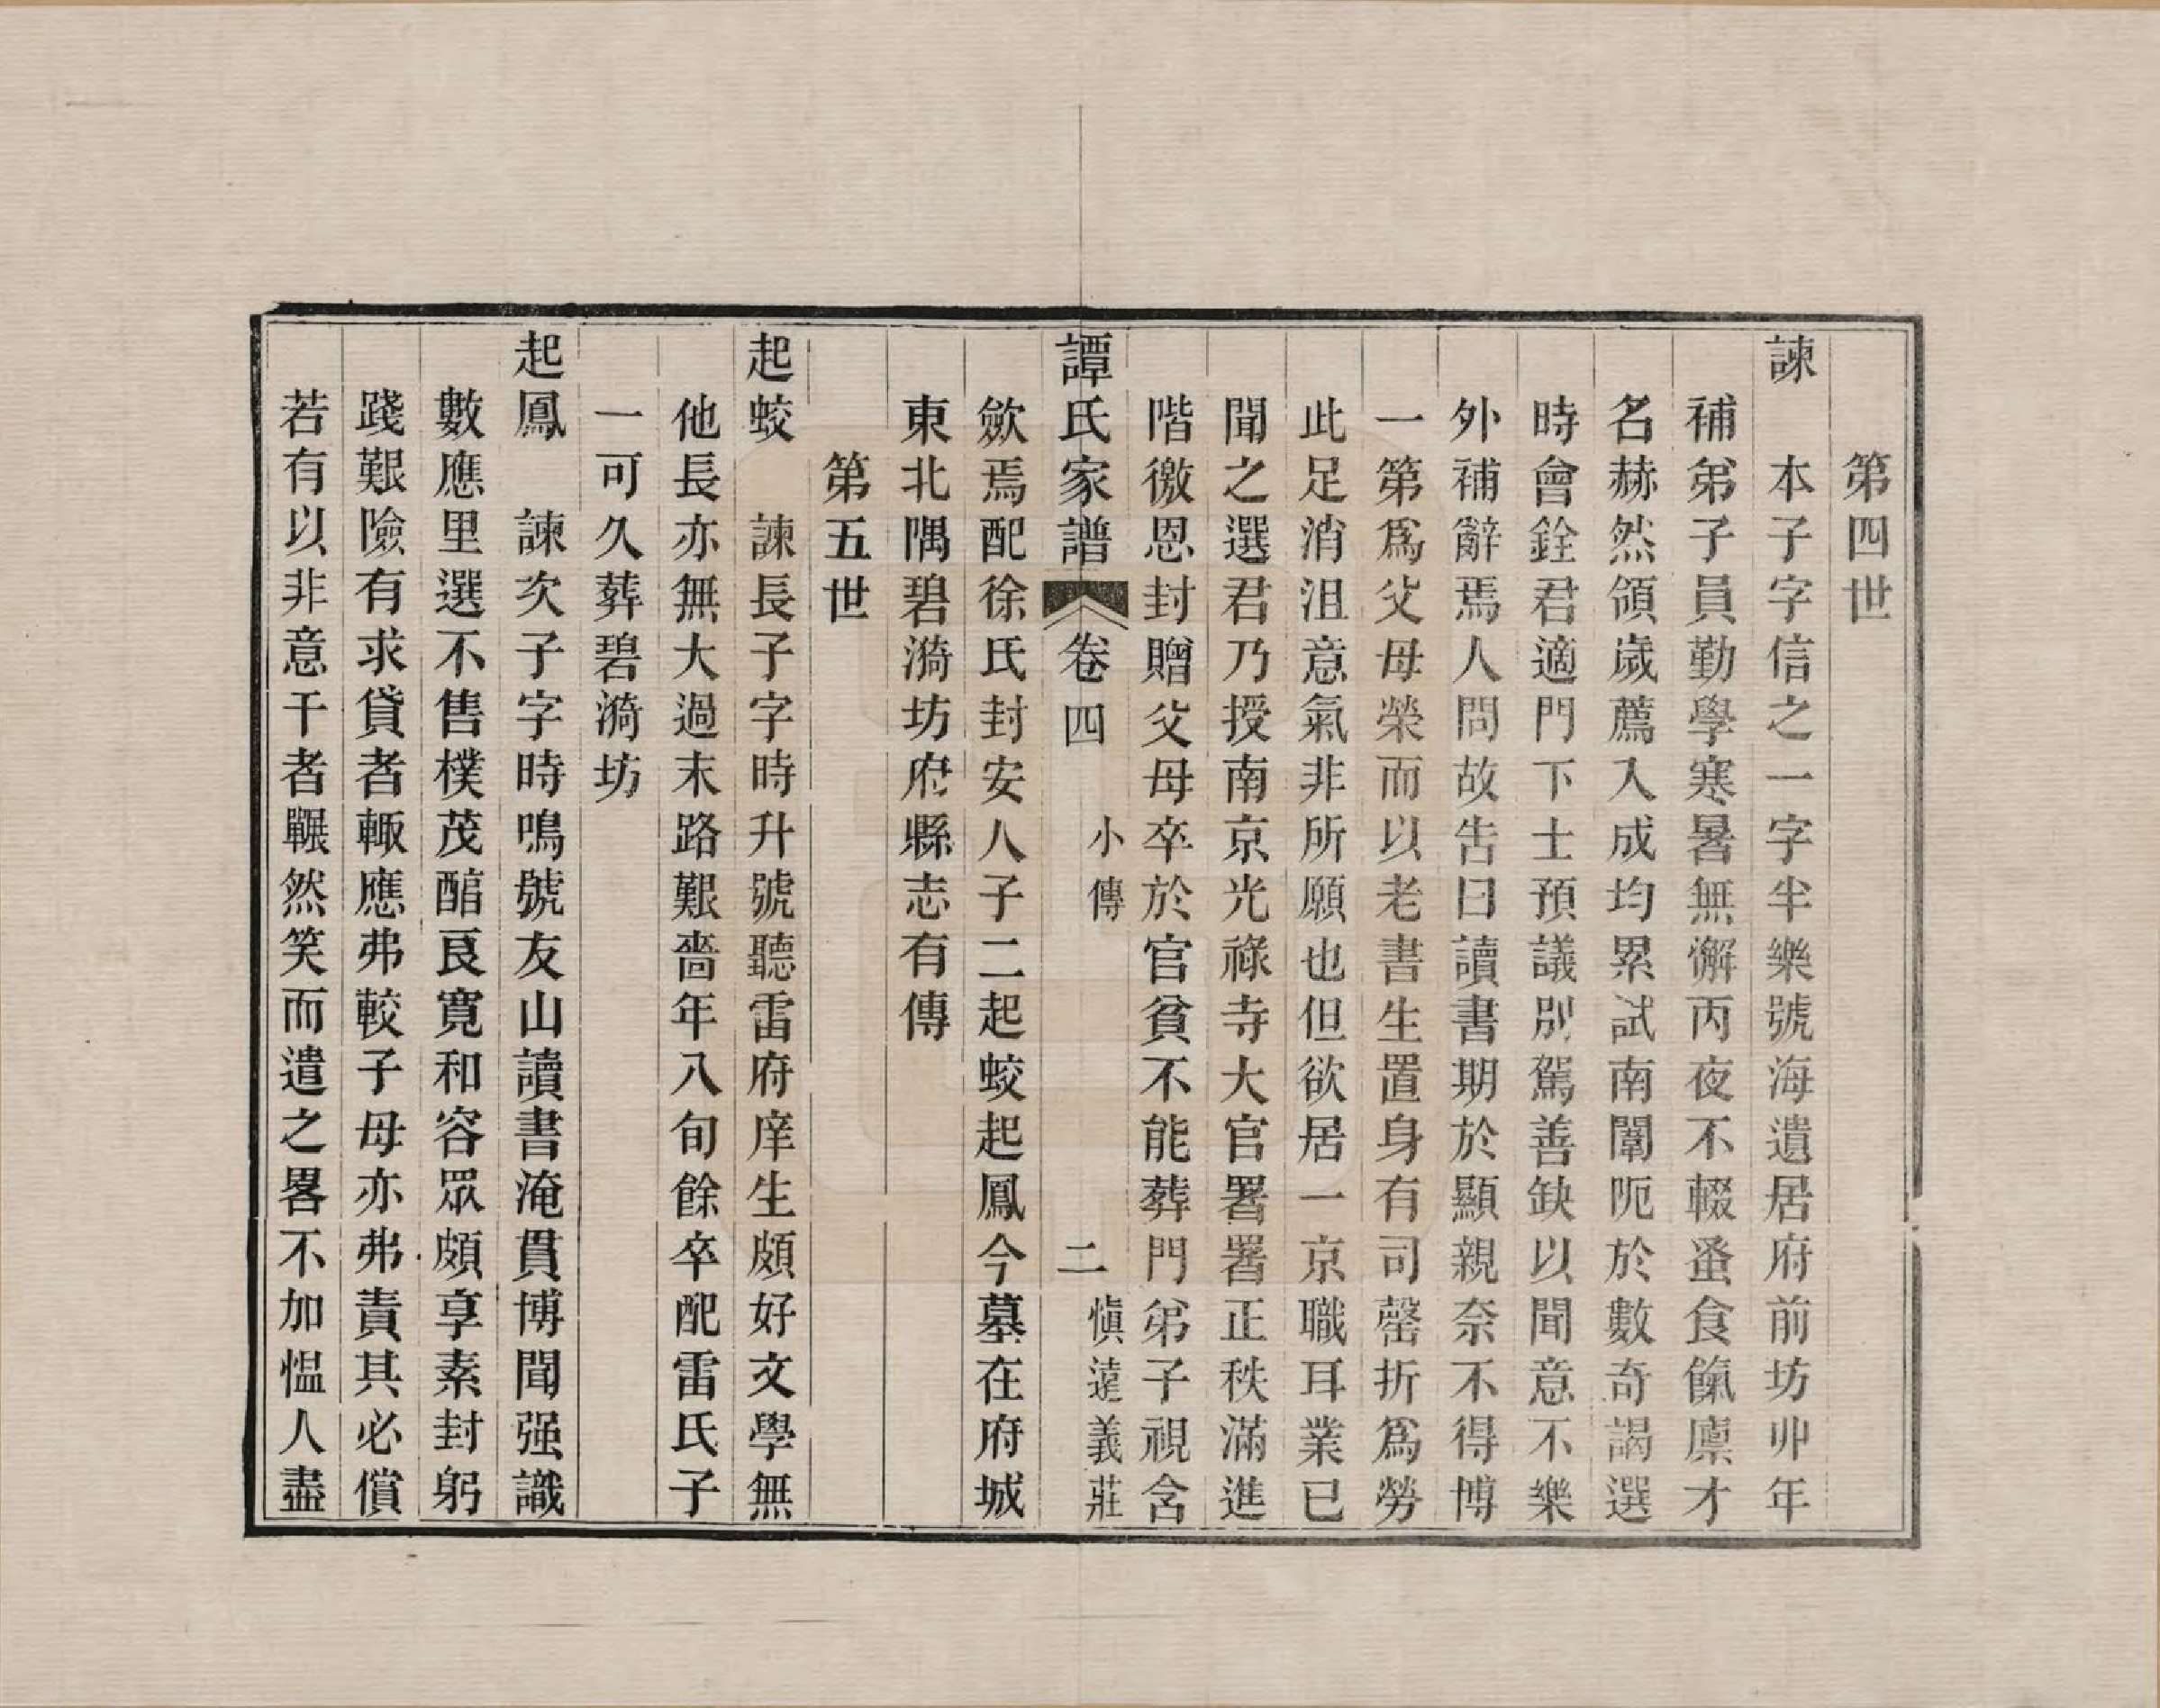 第四世
諫　本子字信之一字半樂號海遺居府前坊丱年
補弟子員勤學寒暑無懈丙夜不輟蚤食餼廪才
名赫然領歲薦入成均累試南闈阨於數奇謁選
時會銓君適門下士預議別駕善缺以聞意不樂
外補辭焉人問故告曰讀書期於顯親奈不得博
一第爲父母榮而以老書生置身有司罄折爲勞
此足消沮意氣非所願也但欲居一京職耳業已
聞之選君乃授南京光祿寺大官署署正秩滿進
階徼恩封贈父母卒於官貧不能葬門弟子視含
譚氏家譜　卷四　小傳　二　愼遠義莊
歛焉配徐氏封安人子二起蛟起鳳今墓在府城
東北隅碧漪坊府縣志有傳
第五世
起蛟　諫長子字時升號聽雷府庠生頗好文學無
他長亦無大過末路艱嗇年八旬餘卒配雷氏子
一可久葬碧漪坊
起鳳　諫次子字時鳴號友山讀書淹貫博聞强識
數應里選不售樸茂醕良寛和容眾頗享素封躬
踐艱險有求貸者輙應弗較子母亦弗責其必償
若有以非意干者囅然笑而遣之畧不加慍人盡